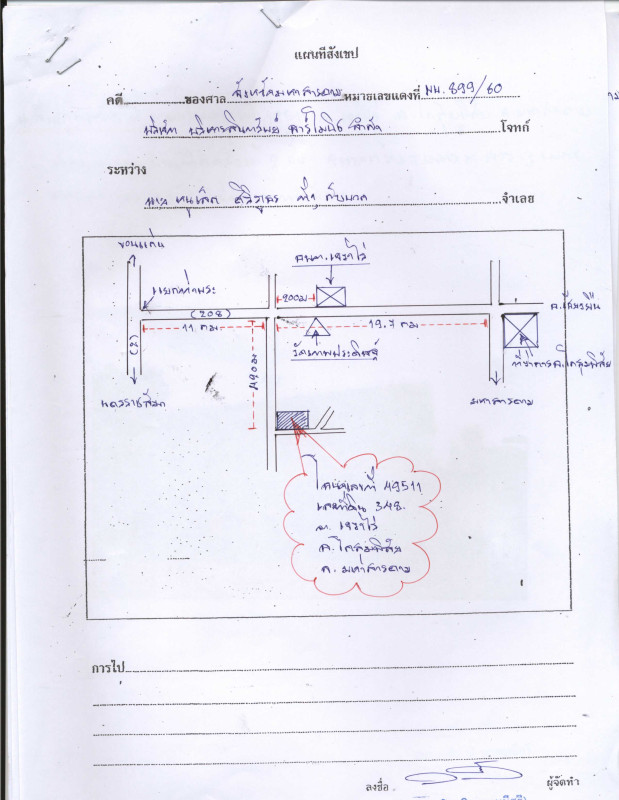 แผนที่สังเขป
คดี ของศาล จังหวัดมหาสารคาม หมายเลขแดงที่ ผบ. 899/60
บริษัท บริหารสินทรัพย์ คาร์โมนิช จำกัด โจทก์
ระหว่าง
นาง หนูเกิด ที่1 กับพวก จำเลย
ขอนแก่น
แยกท่าพระ
อบต.เขวาไร่
200ม
(208)
11 กม
19.7 กม
อ.เชียงยืน
(2)
490ม
วัดเทพประดิษฐ์
ที่ว่าการอ.โกสุมพิสัย
นครราชสีมา
มหาสารคาม
โฉนดเลขที่ 49511
เลขที่ดิน 348
ต. เขวาไร่
อ. โกสุมพิสัย
จ. มหาสารคาม
การไป
ลงชื่อ ผู้จัดทำ